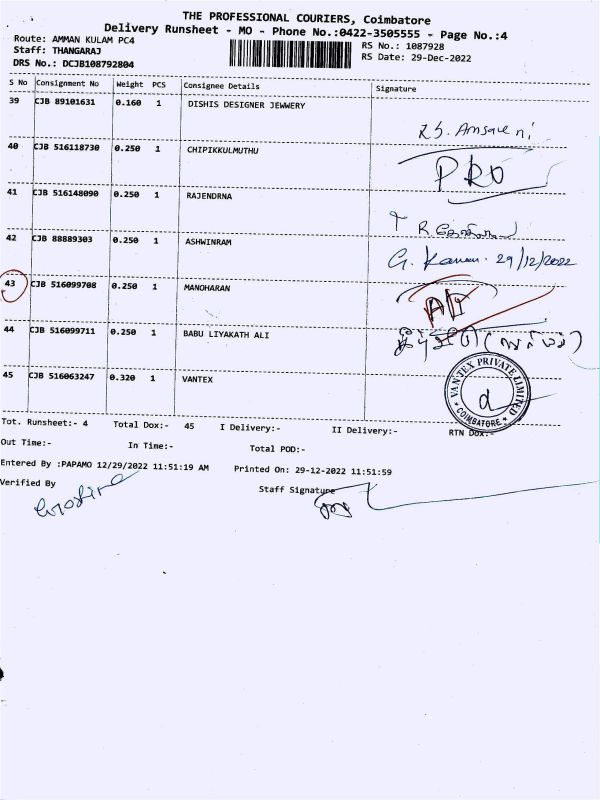 THE PROFESSIONAL COURIERS, Coimbatore
Delivery Runsheet - MO - Phone No.:0422-3505555 - Page No.:4
Route: AMMAN KULAM PC4 RS No.: 1087928
Staff: THANGARAJ RS Date: 29-Dec-2022
DRS No.: DCJB108792804
S No Consignment No Weight PCS Consignee Details Signature
39 CJB 89101631 0.160 1 DISHIS DESIGNER JEWWERY
40 CJB 516118730 0.250 1 CHIPIKKULMUTHU
41 CJB 516148090 0.250 1 RAJENDRNA
42 CJB 88889303 0.250 1 ASHWINRAM
G. 29/12/2022
43 CJB 516099708 0.250 1 MANOHARAN
44 CJB 516099711 0.250 1 BABU LIYAKATH ALI
45 CJB 516063247 0.320 1 VANTEX
VANTEX PRIVATE LIMITED
COIMBATORE
Tot. Runsheet:- 4 Total Dox:- 45 I Delivery:- II Delivery:- RTN Dox:-
Out Time:- In Time:- Total POD:-
Entered By :PAPAMO 12/29/2022 11:51:19 AM Printed On: 29-12-2022 11:51:59
Verified By Staff Signature